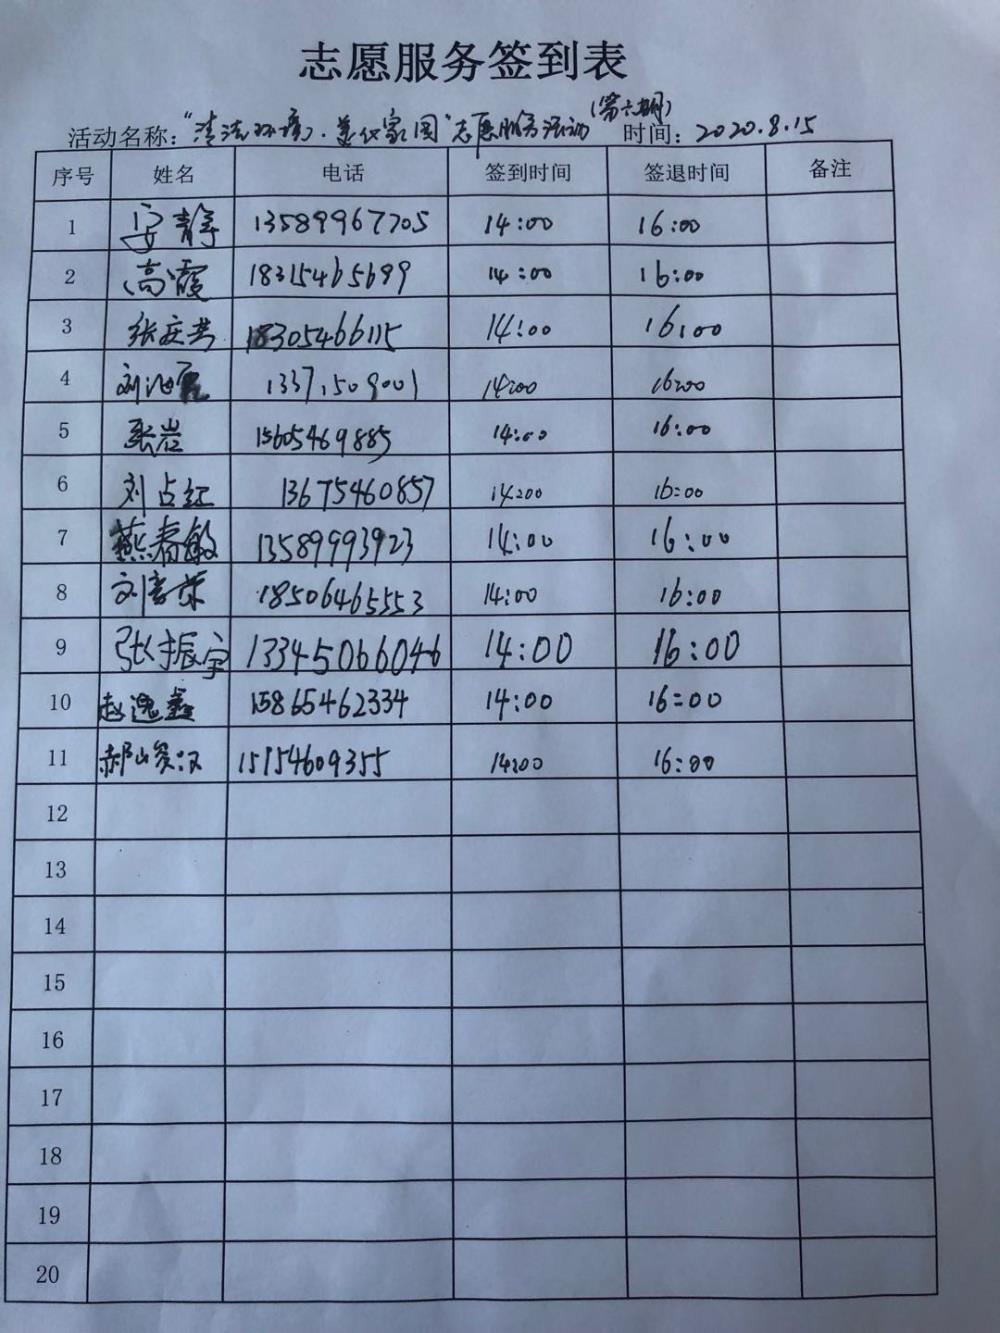 志愿服务签到表
(第六期)
活动名称：“清洁环境，美化家园”志愿服务活动 时间：2020.8.15
序号 姓名 电话 签到时间 签退时间 备注
1 安静 13589967705 14:00 16:00
2 高霞 18315465699 14:00 16:00
3 张庆芸 18305466115 14:00 16:00
4 刘 13371509001 14:00 16:00
5 张岩 15605469885 14:00 16:00
6 刘占红 13675460857 14:00 16:00
7 燕春敏 13589993923 14:00 16:00
8 刘 18506465553 14:00 16:00
9 张振宇 13345066046 14:00 16:00
10 赵逸鑫 15865462334 14:00 16:00
11 郝 15154609355 14:00 16:00
12
13
14
15
16
17
18
19
20